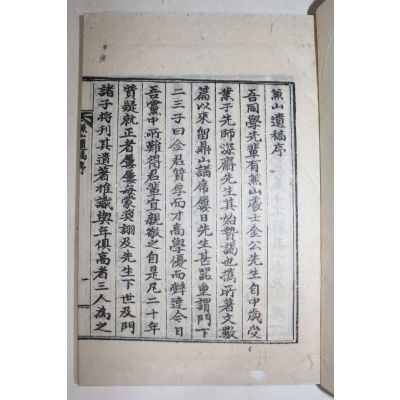 燕山遺稿序
吾同學先輩有燕山處士金公先生自中歲受
業于先師深齋先生其始贄謁也携所著文數
篇以來留鼎山講席屢日先生甚器重謂門下
二三子曰金君質厚而才高學優而辭達今日
吾黨中所難得君輩宜親敬之自是凡二十年
質疑就正者屢屢每蒙奬詡及先生下世及門
諸子將刊其遺著推識與年俱高者三人為之
燕山遺稿序
一